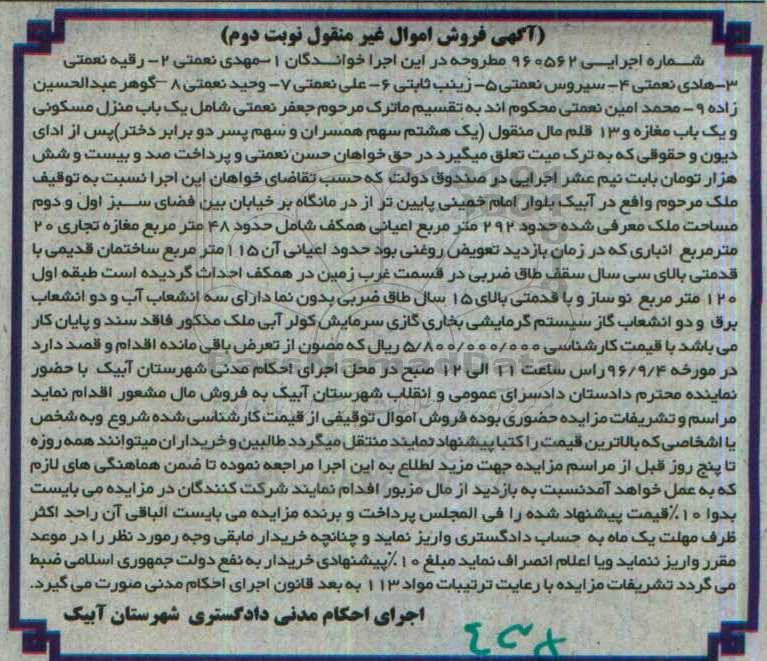 (آگهی فروش اموال غیر منقول نوبت دوم)
شماره اجرایی ۹۶۰۵۶۲ مطروحه در این اجرا خواندگان ۱-مهدی نعمتی ۲- رقیه نعمتی
۳-هادی نعمتی ۴- سیروس نعمتی ۵- زینب ثابتی ۶- علی نعمتی ۷- وحید نعمتی ۸- گوهر عبدالحسین
زاده ۹- محمد امین نعمتی محکوم اند به تقسیم ماترک مرحوم جعفر نعمتی شامل یک باب منزل مسکونی
و یک باب مغازه و ۱۳ قلم مال منقول (یک هشتم سهم همسران و سهم پسر دو برابر دختر) پس از ادای
دیون و حقوقی که به ترک میت تعلق میگیرد در حق خواهان حسن نعمتی و پرداخت صد و بیست و شش
هزار تومان بابت نیم عشر اجرایی در صندوق دولت که حسب تقاضای خواهان این اجرا نسبت به توقیف
ملک مرحوم واقع در آبیک بلوار امام خمینی پایین تر از در مانگاه بر خیابان بین فضای سبز اول و دوم
مساحت ملک معرفی شده حدود ۲۹۲ متر مربع اعیانی همکف شامل حدود ۴۸ متر مربع مغازه تجاری ۲۰
مترمربع انباری که در زمان بازدید تعویض روغنی بود حدود اعیانی آن ۱۱۵ متر مربع ساختمان قدیمی با
قدمتی بالای سی سال سقف طاق ضربی در قسمت غرب زمین در همکف احداث گردیده است طبقه اول
۱۲۰ متر مربع نو ساز و با قدمتی بالای ۱۵ سال طاق ضربی بدون نما دارای سه انشعاب آب و دو انشعاب
برق و دو انشعاب گاز سیستم گرمایشی بخاری گازی سرمایش کولر آبی ملک مذکور فاقد سند و پایان کار
می باشد با قیمت کارشناسی ۵/۸۰۰/۰۰۰/۰۰۰ ریال که مصون از تعرض باقی مانده اقدام و قصد دارد
در مورخه ۹۶/۹/۴ راس ساعت ۱۱ الی ۱۲ صبح در محل اجرای احکام مدنی شهرستان آبیک با حضور
نماینده محترم دادستان دادسرای عمومی و انقلاب شهرستان آبیک به فروش مال مشعور اقدام نماید
مراسم و تشریفات مزایده حضوری بوده فروش اموال توقیفی از قیمت کارشناسی شده شروع وبه شخص
یا اشخاصی که بالاترین قیمت را کتبا پیشنهاد نمایند منتقل میگردد طالبین و خریداران میتوانند همه روزه
تا پنج روز قبل از مراسم مزایده جهت مزید لطلاع به این اجرا مراجعه نموده تا ضمن هماهنگی های لازم
که به عمل خواهد آمدنسبت به بازدید از مال مزبور اقدام نمایند شرکت کنندگان در مزایده می بایست
بدوا ۱۰٪ قیمت پیشنهاد شده را فی المجلس پرداخت و برنده مزایده می بایست الباقی آن راحد اکثر
ظرف مهلت یک ماه به حساب دادگستری واریز نماید و چنانچه خریدار مابقی وجه رمورد نظر را در موعد
مقرر واریز ننماید ویا اعلام انصراف نماید مبلغ ۱۰٪ پیشنهادی خریدار به نفع دولت جمهوری اسلامی ضبط
می گردد تشریفات مزایده با رعایت ترتیبات مواد ۱۱۳ به بعد قانون اجرای احکام مدنی صورت می گیرد.
اجرای احکام مدنی دادگستری شهرستان آبیک